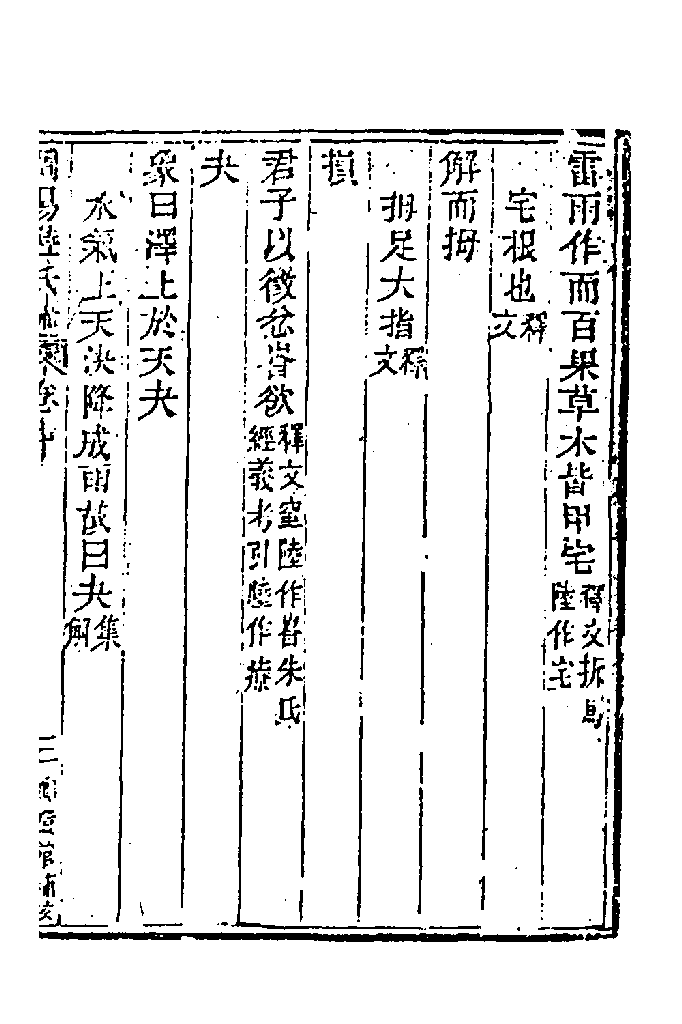 雷雨作而百果草木皆甲宅釋文坼馬陸作宅
宅根也釋文
解而拇
拇足大指釋文
損
君子以徵忿㫺欲釋文窒陸作㫺朱氏經義考引陸作
夬
象曰澤上於天夬
水氣上天決降成雨故曰夬集解
周易陸氏
三